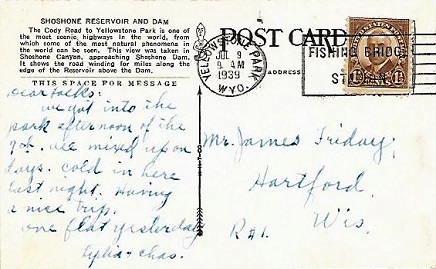 SHOSHONE RESERVOIR AND DAM
The Cody Road to Yellowstone Park is one of
the most scenic highways in the world, from
which some of the most natural phenomena in
the world can be seen. This view was taken in
Shoshone Canyon, approaching Shoshone Dam.
It shows the road winding for miles along the
edge of the Reservoir above the Dam.
THIS SPACE FOR MESSAGE
Dear folks:
we got into the
park afternoon of the
7th. all mixed up on
days. cold in here
last night. Having
a nice trip.
one flat yesterday
Lydia + Chas.
POST CARD
ADDRESS
YELLOWSTONE PARK
JUL 9
9 AM
1939
WYO.
FISHING BRIDGE
STA.
Mr. James Friday,
Hartford,
R#1. Wis.